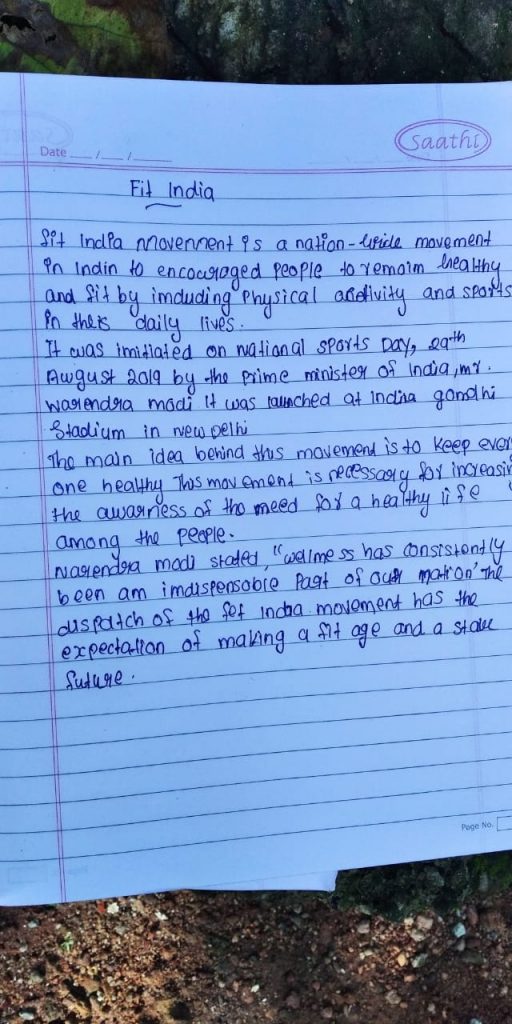 Saathi
Date __/__/____
Fit India
fit India Movement is a nation-wide movement
in Indin to encouraged people to remaim healthy
and fit by imduding Physical activity and sports
in their daily lives.
It was imitiated on national sports Day, 29th
August 2019 by the prime minister of India, mr.
Narendra modi it was launched at indira gandhi
Stadium in new Delhi
The main idea behind this movement is to keep every
one healthy This movement is necessary for increasin
the awarness of the meed for a healthy life
among the people.
Narendra modi stated, "wellmess has consistently
been am imdispensable Part of our mation' The
dispatch of the fet India movement has the
expectation of making a fit age and a
future.
Page No.